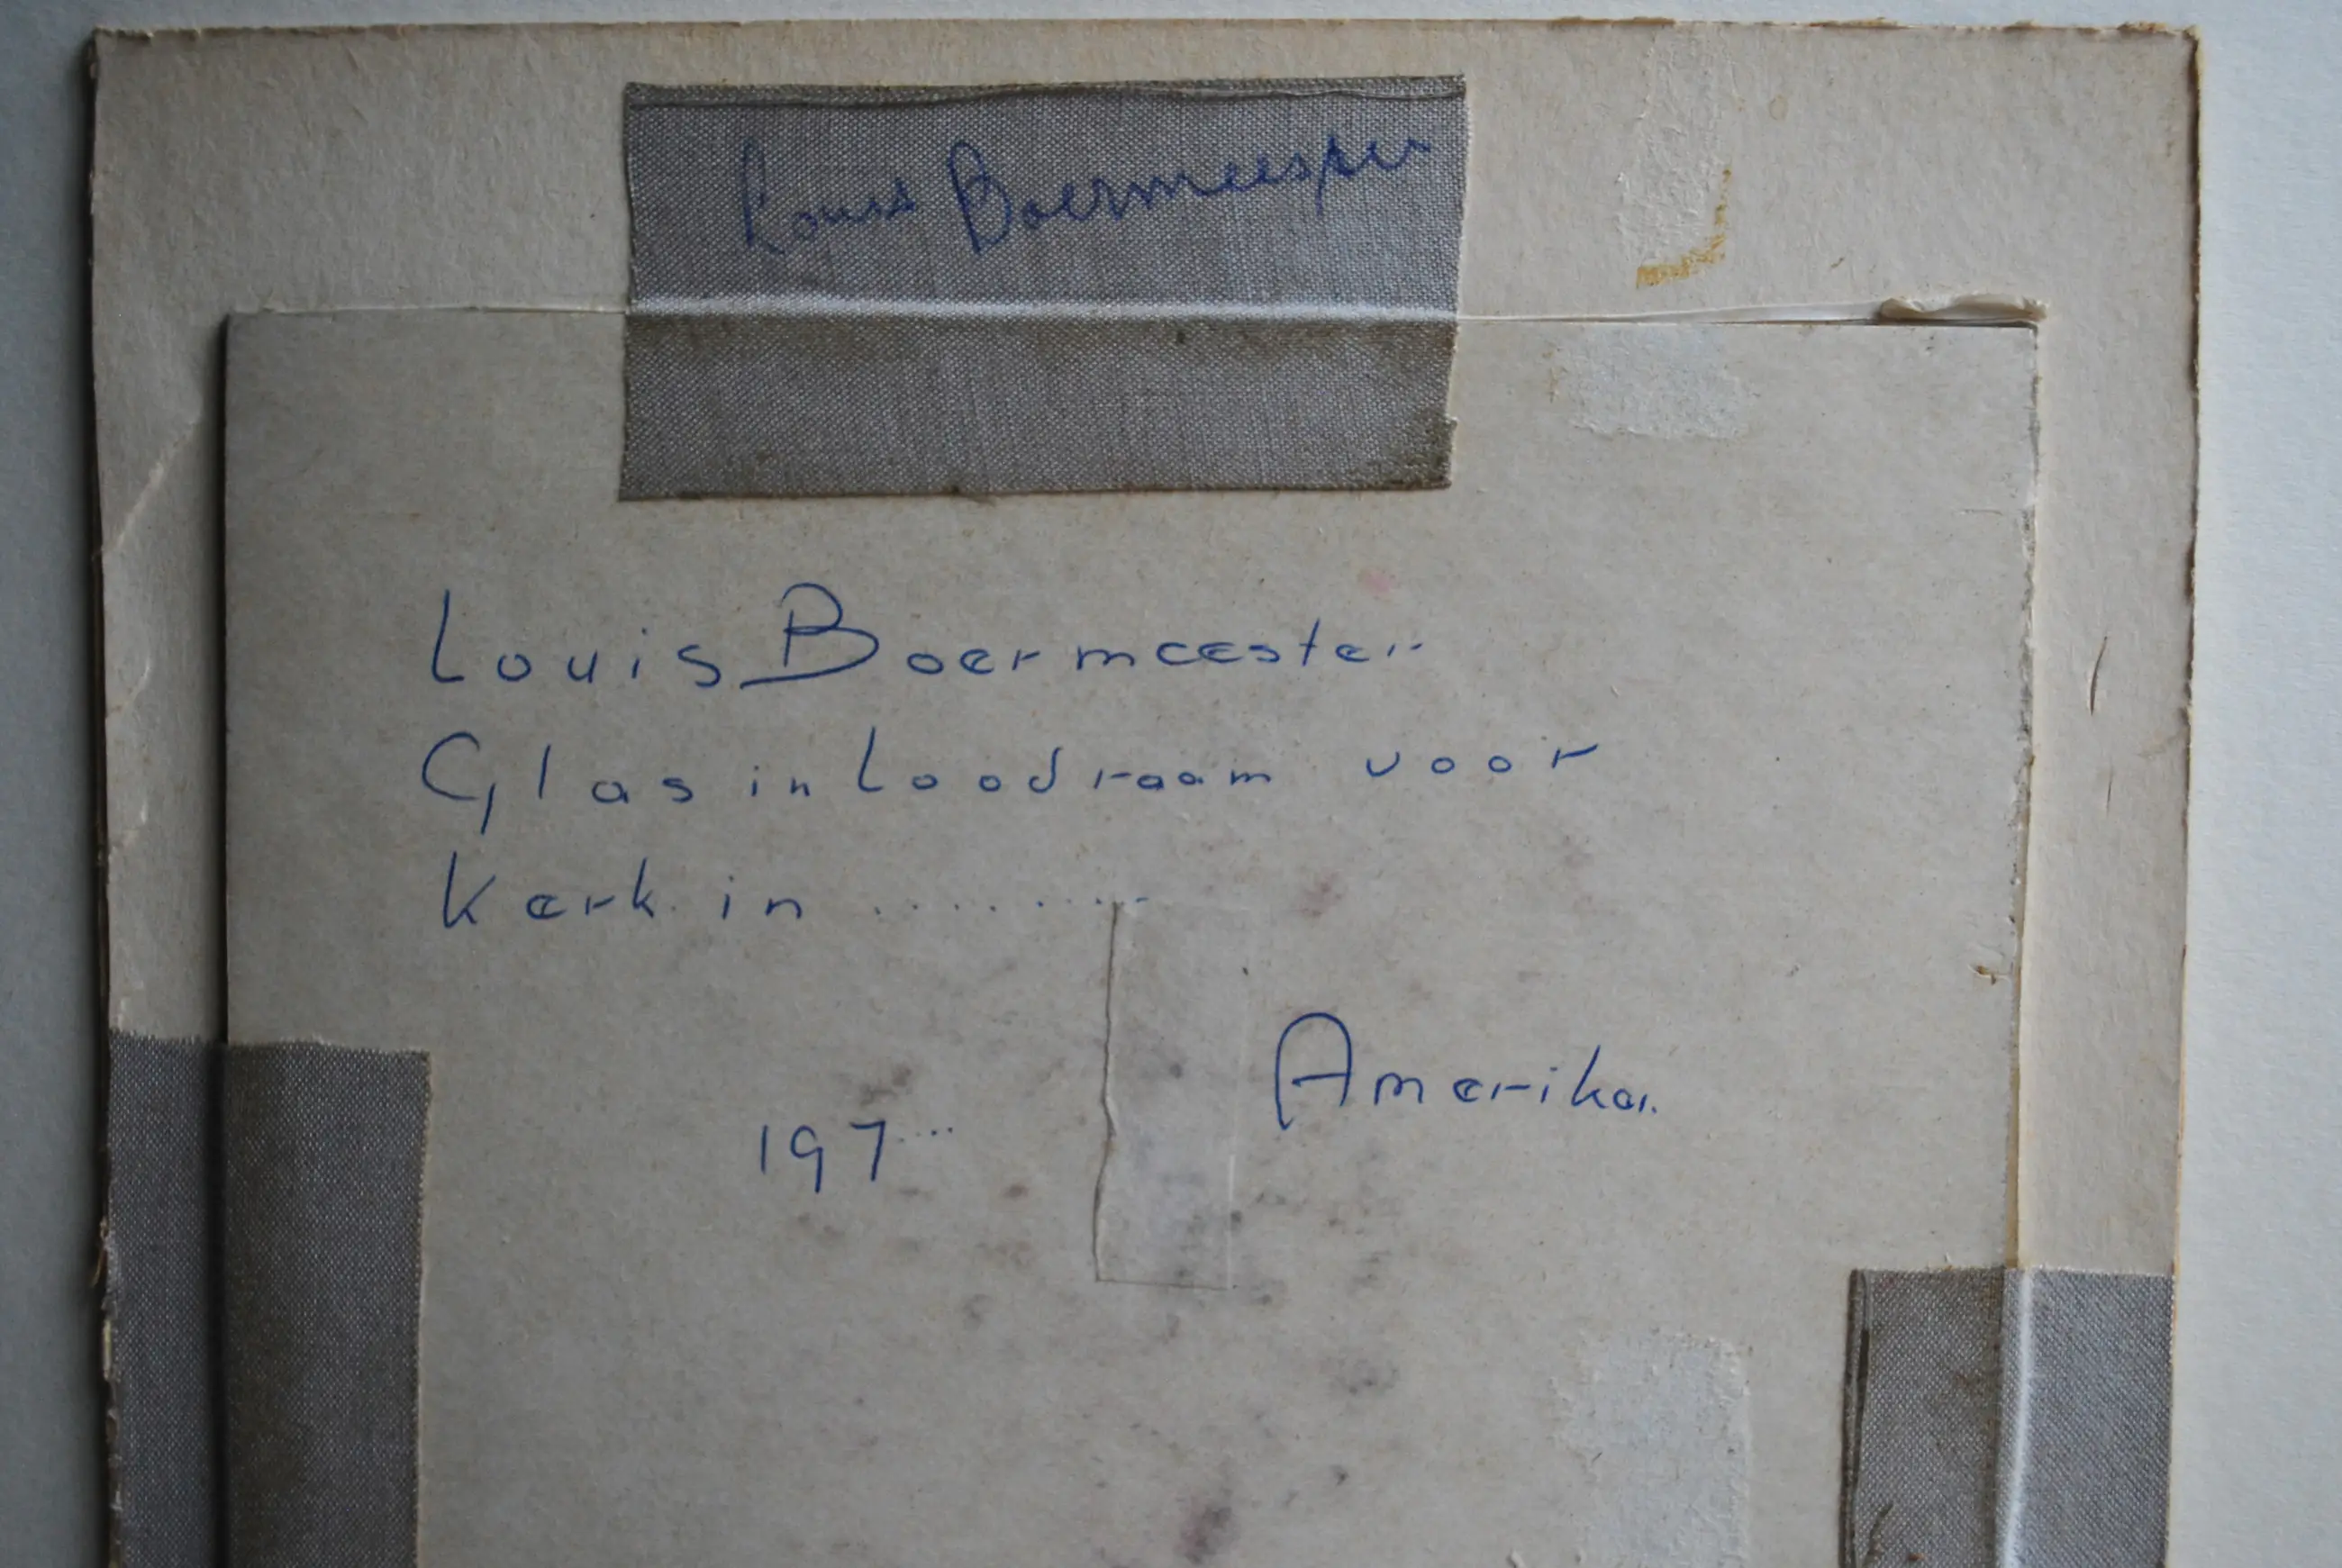 Louis Boermeester
Louis Boermeester
Glas in Loodraam voor
Kerk in ..........
Amerika.
197...